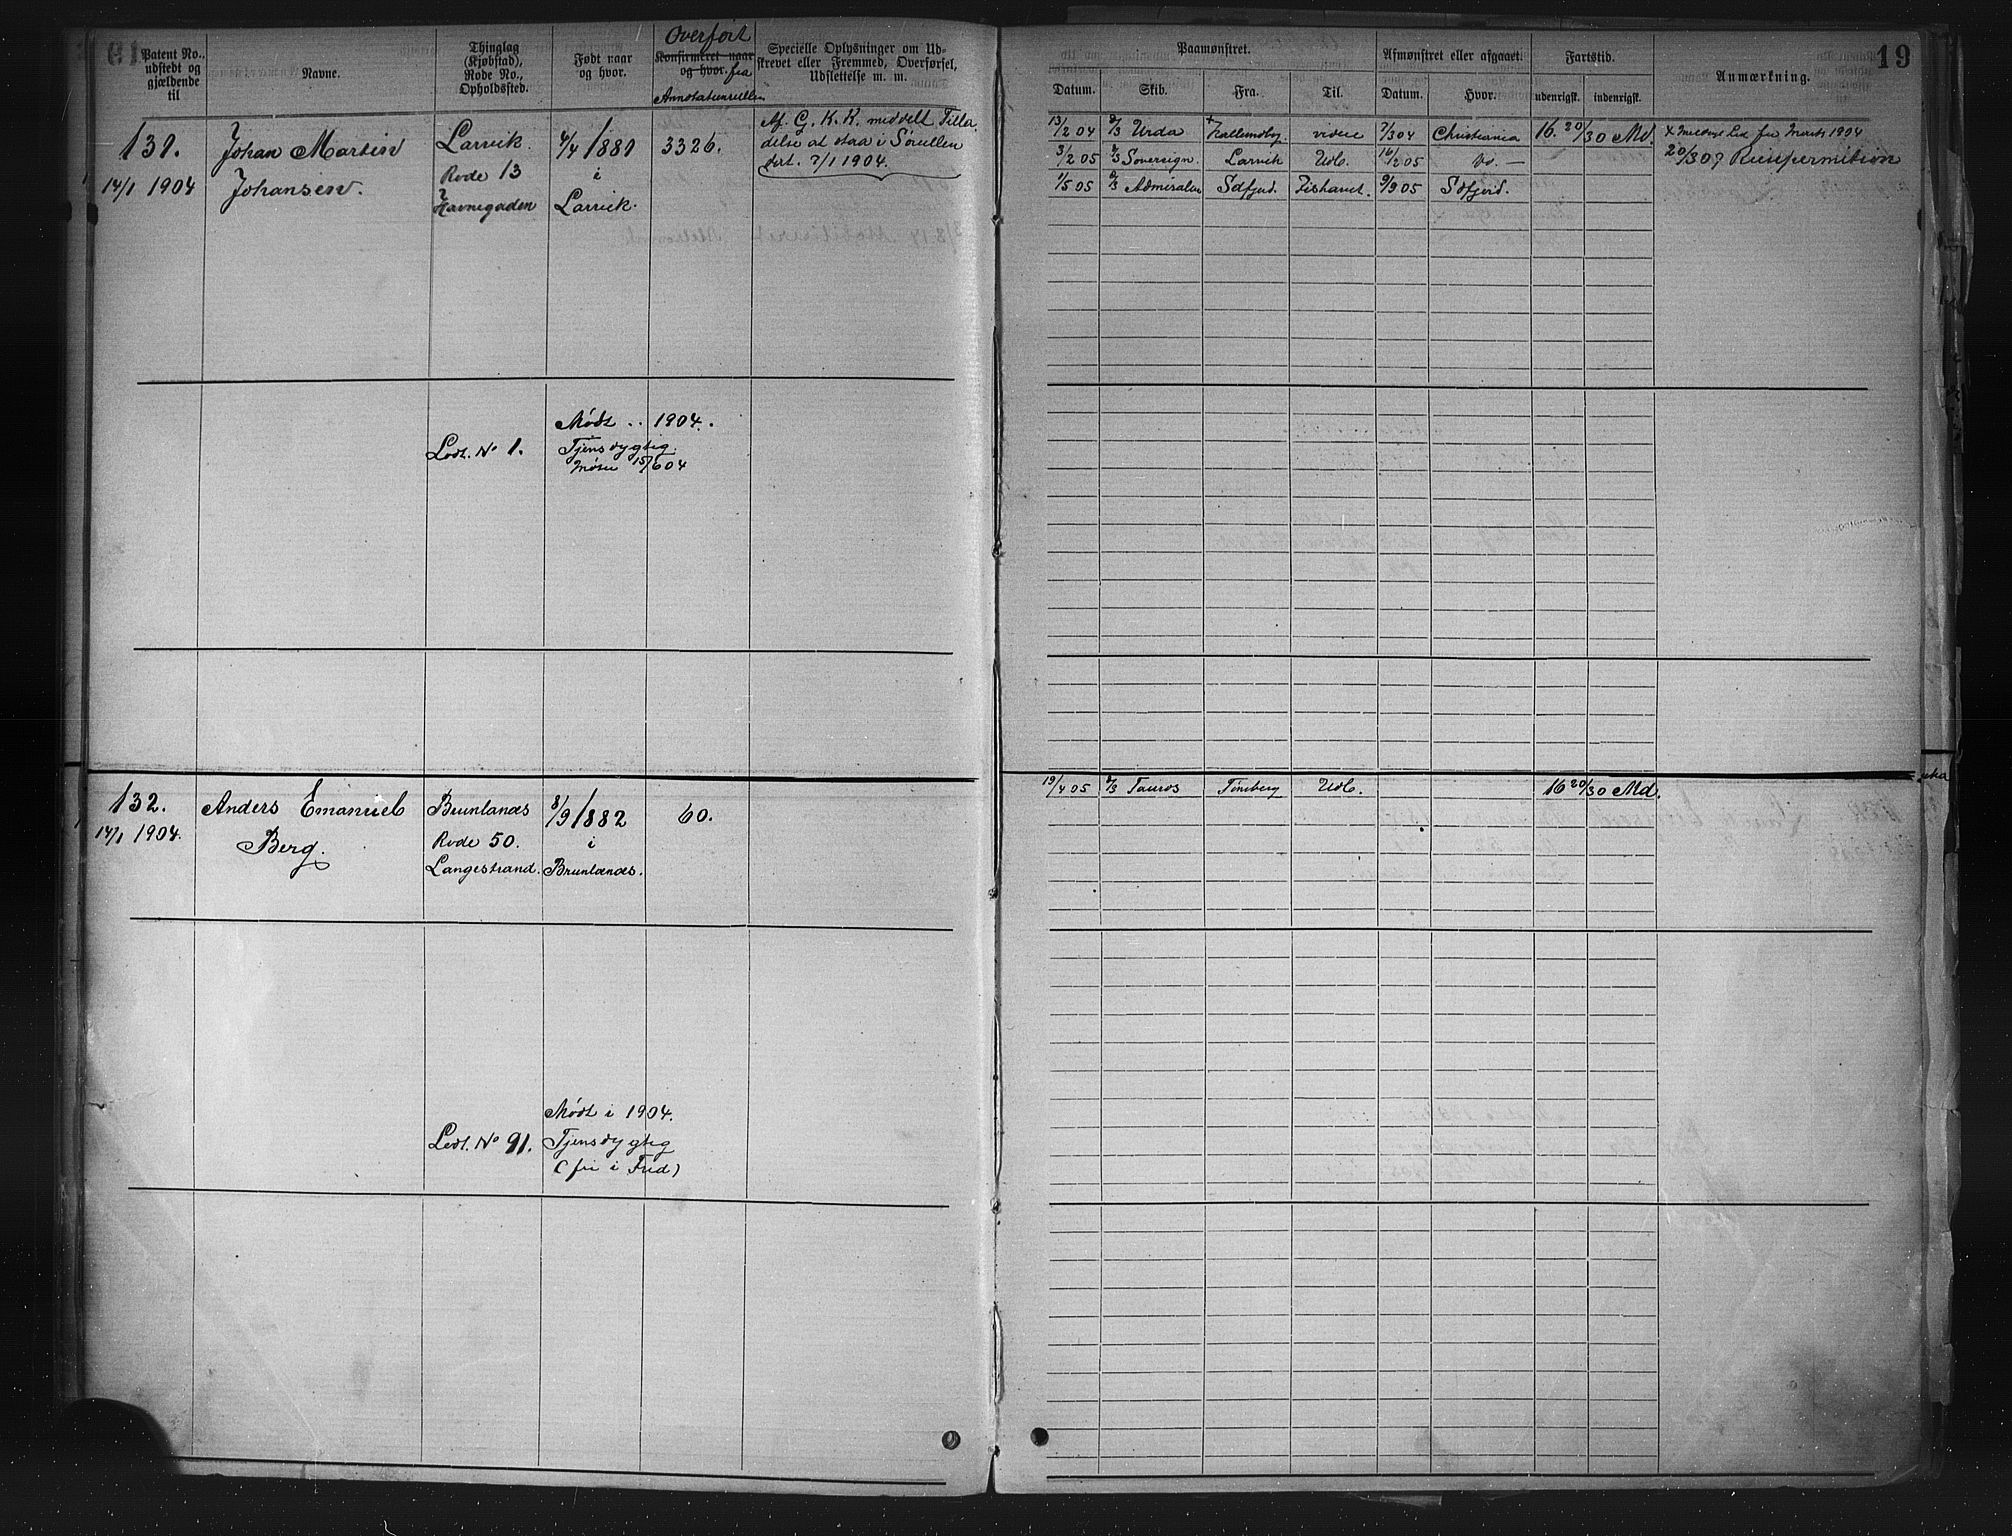 Patent No., udstedt og gjældende til
Navne.
Thinglag (Kjøbstad), Rode No., Opholdssted.
Født naar og hvor.
Overført
Konfirmeret naar og hvor. fra
Annotationsrullen
Specielle Oplysninger om Udskrevet eller Fremmed, Overførsel, Udslettelse m. m.
Paamønstret.
Datum. Skib. Fra. Til.
Afmønstret eller afgaaet.
Datum. Hvor.
Fartstid.
udenrigsk. indenrigsk.
Anmærkning.
19
131.
14/1 1904
Johan Martin
Johansen.
Larvik.
Rode 13
Havnegaden
4/4 1881
i
Larvik.
3326.
Af G. K. K. meddelt Tilla
delse at staa i Sørullen
dat. 7/1 1904.
13/2 04 Urda videre 7/3 04 Christiania 16 20/30 Md.
3/2 05 Sovereign Larvik Udl. 16/2 05 Do. —
1/5 05 Admiralen Sdfjord. Fishavet 9/9 05 Sdfjord.
Lodt. No 1.
Mødt .. 1904.
Tjensdygtig
Møder 15/6 04
132.
14/1 1904.
Anders Emanuel
Berg.
Brunlanes
Rode 50.
Langestrand.
8/9 1882
i
Brunlanes.
60.
19/4 05 Tauros Tønsberg Udl. 16 20/30 Md.
Lodt. No 91.
Mødt i 1904.
Tjensdygtig
(fri i Fred)